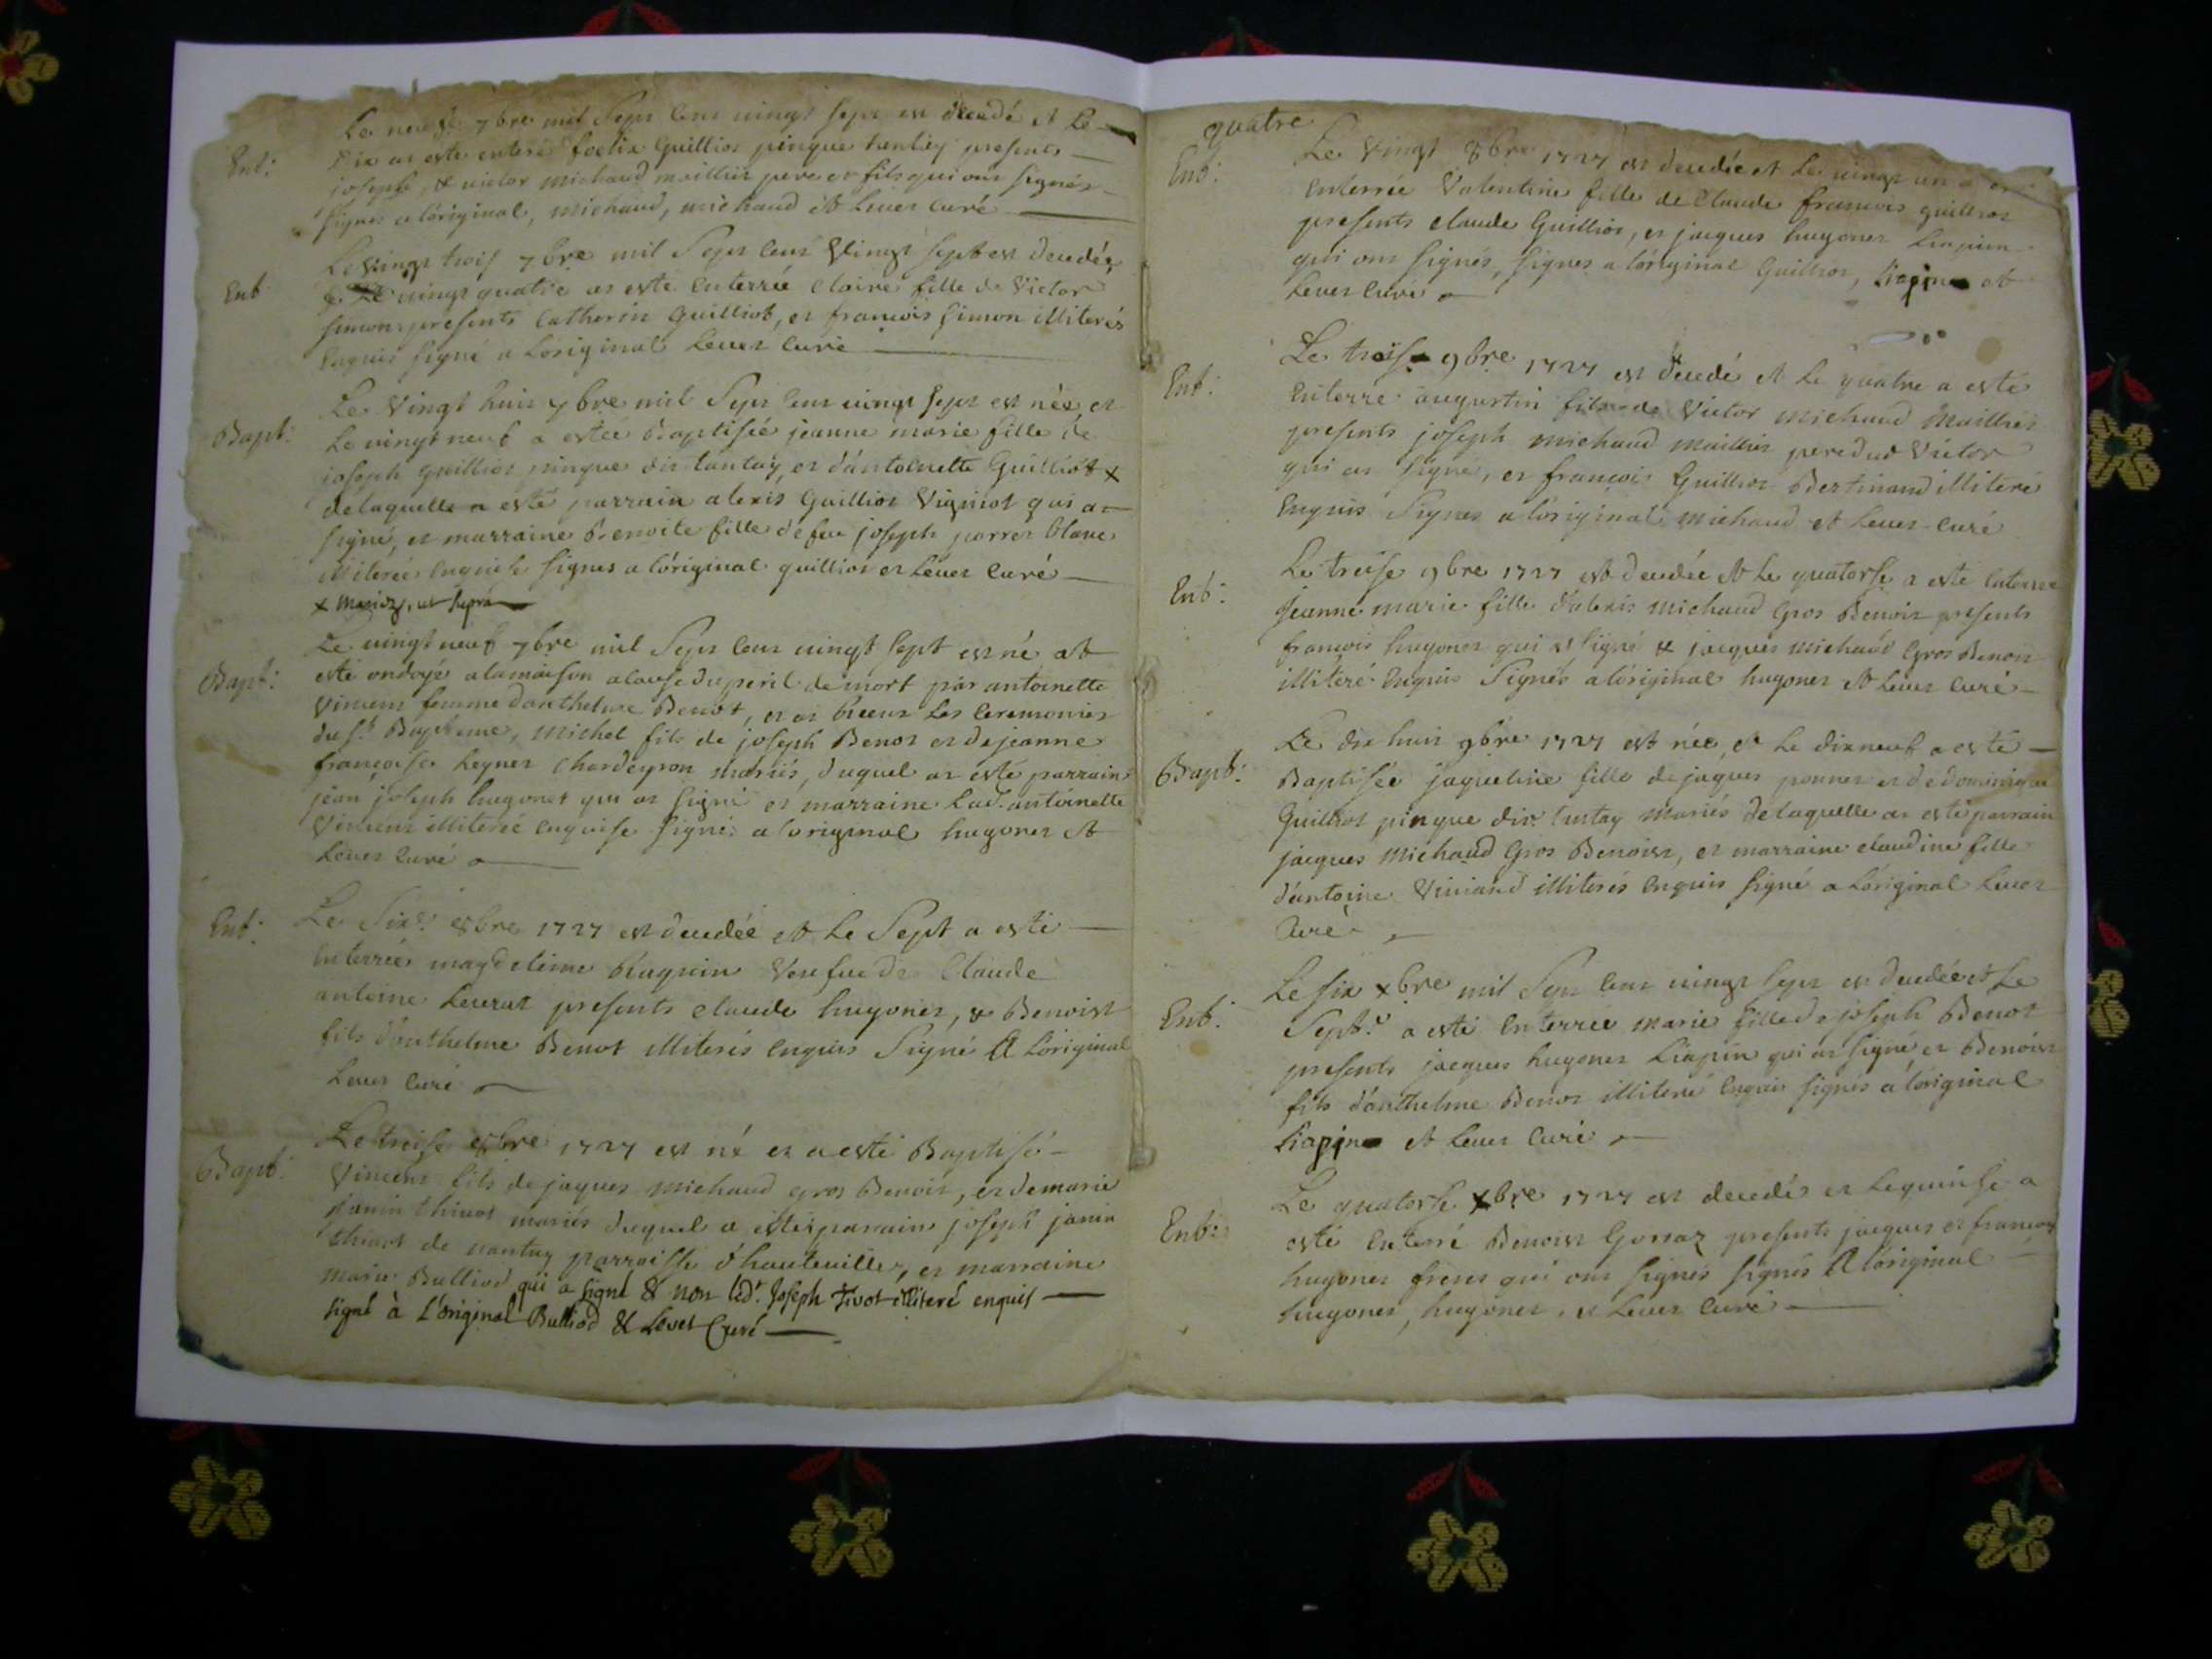 Ent: Le neufe 7bre mil Sept cens vingt sept est decedé et Le
Dix at esté enteré foelix Guilliot pinque presents
joseph, & victor michaud maillier pere et fils qui ont signés
signes a l'original, michaud, michaud et Levet curé
Ent: Le vingt trois 7bre mil Sept cens vingt sept est decedée
& Le vingt quatre at esté enterrée Claire fille de Victor
simon presents Catherin Guilliot, et francois simon illiterés
enquis signé a Loriginal Levet curé
Bapt: Le Vingt huit 7bre mil Sept cens vingt sept est née et
Le vingt neuf a estée Baptisée jeanne marie fille de
joseph guilliot pinque dit tantay, et d'antoinette Guilliot x
de laquelle a esté parrain alexis Guilliot Vigniot qui a
signé, et marraine Benoite fille de feu joseph porret blanc
illiterée enquise signes a l'original guilliot et Levet curé
x mariez, ut supra
Bapt: Le vingt neuf 7bre mil Sept cens vingt sept est né at
esté ondoyé a la maison a cause du peril de mort par antoinette
Vincent femme d'anthelme Benot, et at Receus les Ceremonies
du St. Bapteme, michel fils de joseph Benot et de jeanne
françoise Leynet Chardeyron mariés, duquel at esté parrain
jean joseph hugonet qui at signé et marraine Lad. antoinette
Vincent illiterée enquise signé a loriginal hugonet et
Levet curé
Ent: Le Six.e 8bre 1727 est decedée et Le Sept a esté
enterrée magdeleine Ruquin Veufue de Claude
antoine Leverat presents claude hugonet, & Benoist
fils d'anthelme Benot illiterés enquis Signé A Loriginal
Levet curé
Bapt: Le treise 8bre 1727 est né et a esté Baptisé
Vincent fils de jaques michaud gros Benoit, et de marie
janin thivot mariés duquel a esté parrain joseph janin
thivot de nantuy parroisse d'hauteville, et marraine
marie Bulliod qui a signé & non led.t Joseph Tivot illiteré enquis
signé à L'original Bulliod & Levet Curé
quatre
Ent: Le Vingt 8bre 1727 est decedée et Le vingt un a
enterrée Valentine fille de Claude francois guilliot
presents claude Guilliot, et jacques hugonet Liapin
qui ont signés, signes a l'original Guilliot, Liapin et
Levet curé
Ent: Le trois 9bre 1727 est decedé et Le quatre a esté
enterré augustin fils de Victor michaud maillier
presents joseph michaud maillier pere dud Victor
qui at signé, et françois Guilliot Bertinand illiteré
enquis Signes a l'original michaud et Levet curé
Ent: Le treise 9bre 1727 est decedée et Le quatorse a esté enterrée
jeanne marie fille d'alexis michaud Gros Benoit presents
francois hugonet qui a signé & jacques michaud Gros Benoit
illiteré enquis Signés a l'original hugonet et Levet curé
Bapt: Le dix huit 9bre 1727 est née, et Le dix neuf a esté
Baptisée jaqueline fille de jaques ponnet et de dominique
Guilliot pinque dit tantay mariés de laquelle at esté parrain
jacques michaud Gros Benoist, et marraine claudine fille
d'antoine Viviand illiterés enquis signé a L'original Levet
Curé
Ent: Le six xbre mil Sept cens vingt sept est decedée et Le
Sept.e a esté enterrée marie fille de joseph Benot
presents jacques hugonet Liapin qui at signé et Benoist
fils d'anthelme Benot illiteré enquis signés a l'original
Liapin et Levet curé
Ent: Le quatorse xbre 1727 est decedé et Le quinse a
esté enterré Benoist Gonaz presents jacques et francois
hugonet freres qui ont signés signés A l'original
hugonet, hugonet, et Levet curé